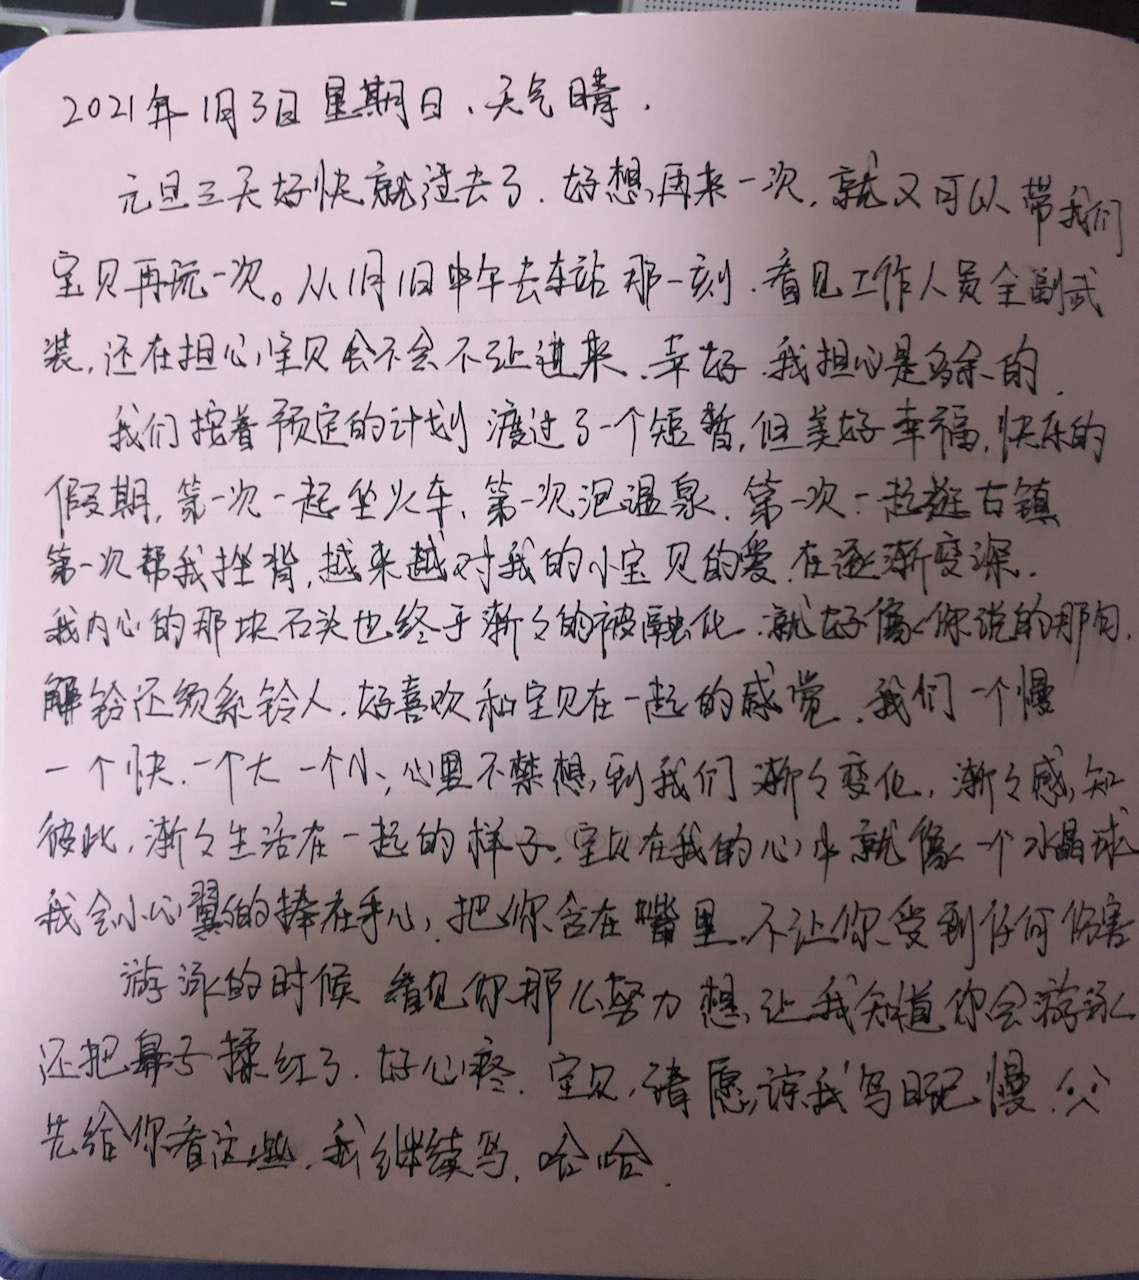 2021年1月3日星期日、天气晴.
元旦三天好快就过去了.好想再来一次,就又可以带我们
宝贝再玩一次。从1月1日中午去车站那一刻.看见工作人员全副武
装,还在担心宝贝会不会不让进来、幸好.我担心是多余的.
我们按着预定的计划渡过了一个短暂,但美好幸福,快乐的
假期,第一次一起坐火车、第一次泡温泉.第一次一起逛古镇
第一次帮我挫背,越来越对我的小宝贝的爱.在逐渐变深.
我内心的那块石头也终于渐々的被融化.就好像你说的那句.
解铃还须系铃人.好喜欢和宝贝在一起的感觉.我们一个慢
一个快.一个大一个小、心里不禁想到我们渐々变化,渐々感知
彼此,渐々生活在一起的样子.宝贝在我的心中就像一个水晶球
我会小心翼々的捧在手心,把你含在嘴里.不让你受到任何伤害
游泳的时候看见你那么努力想让我知道你会游泳
还把鼻子揉红了.好心疼.宝贝,请原谅我写日记慢.
先给你看这些.我继续写.哈哈.